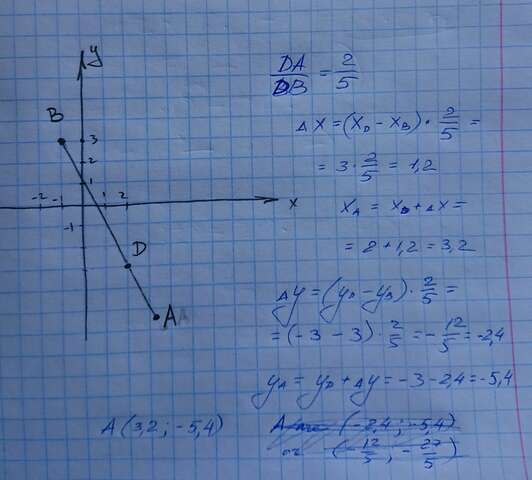 y
B
3
2
1
-2 -1 1 2 x
-1
D
A
DA/DB = 2/5
Δx = (x_D - x_B) · 2/5 =
= 3 · 2/5 = 1,2
x_A = x_D + Δx =
= 2 + 1,2 = 3,2
Δy = (y_D - y_B) · 2/5 =
= (-3 - 3) · 2/5 = -12/5 = -2,4
y_A = y_D + Δy = -3 - 2,4 = -5,4
A (3,2 ; -5,4)
(-2,4 ; -5,4)
(-12/5 ; -27/5)